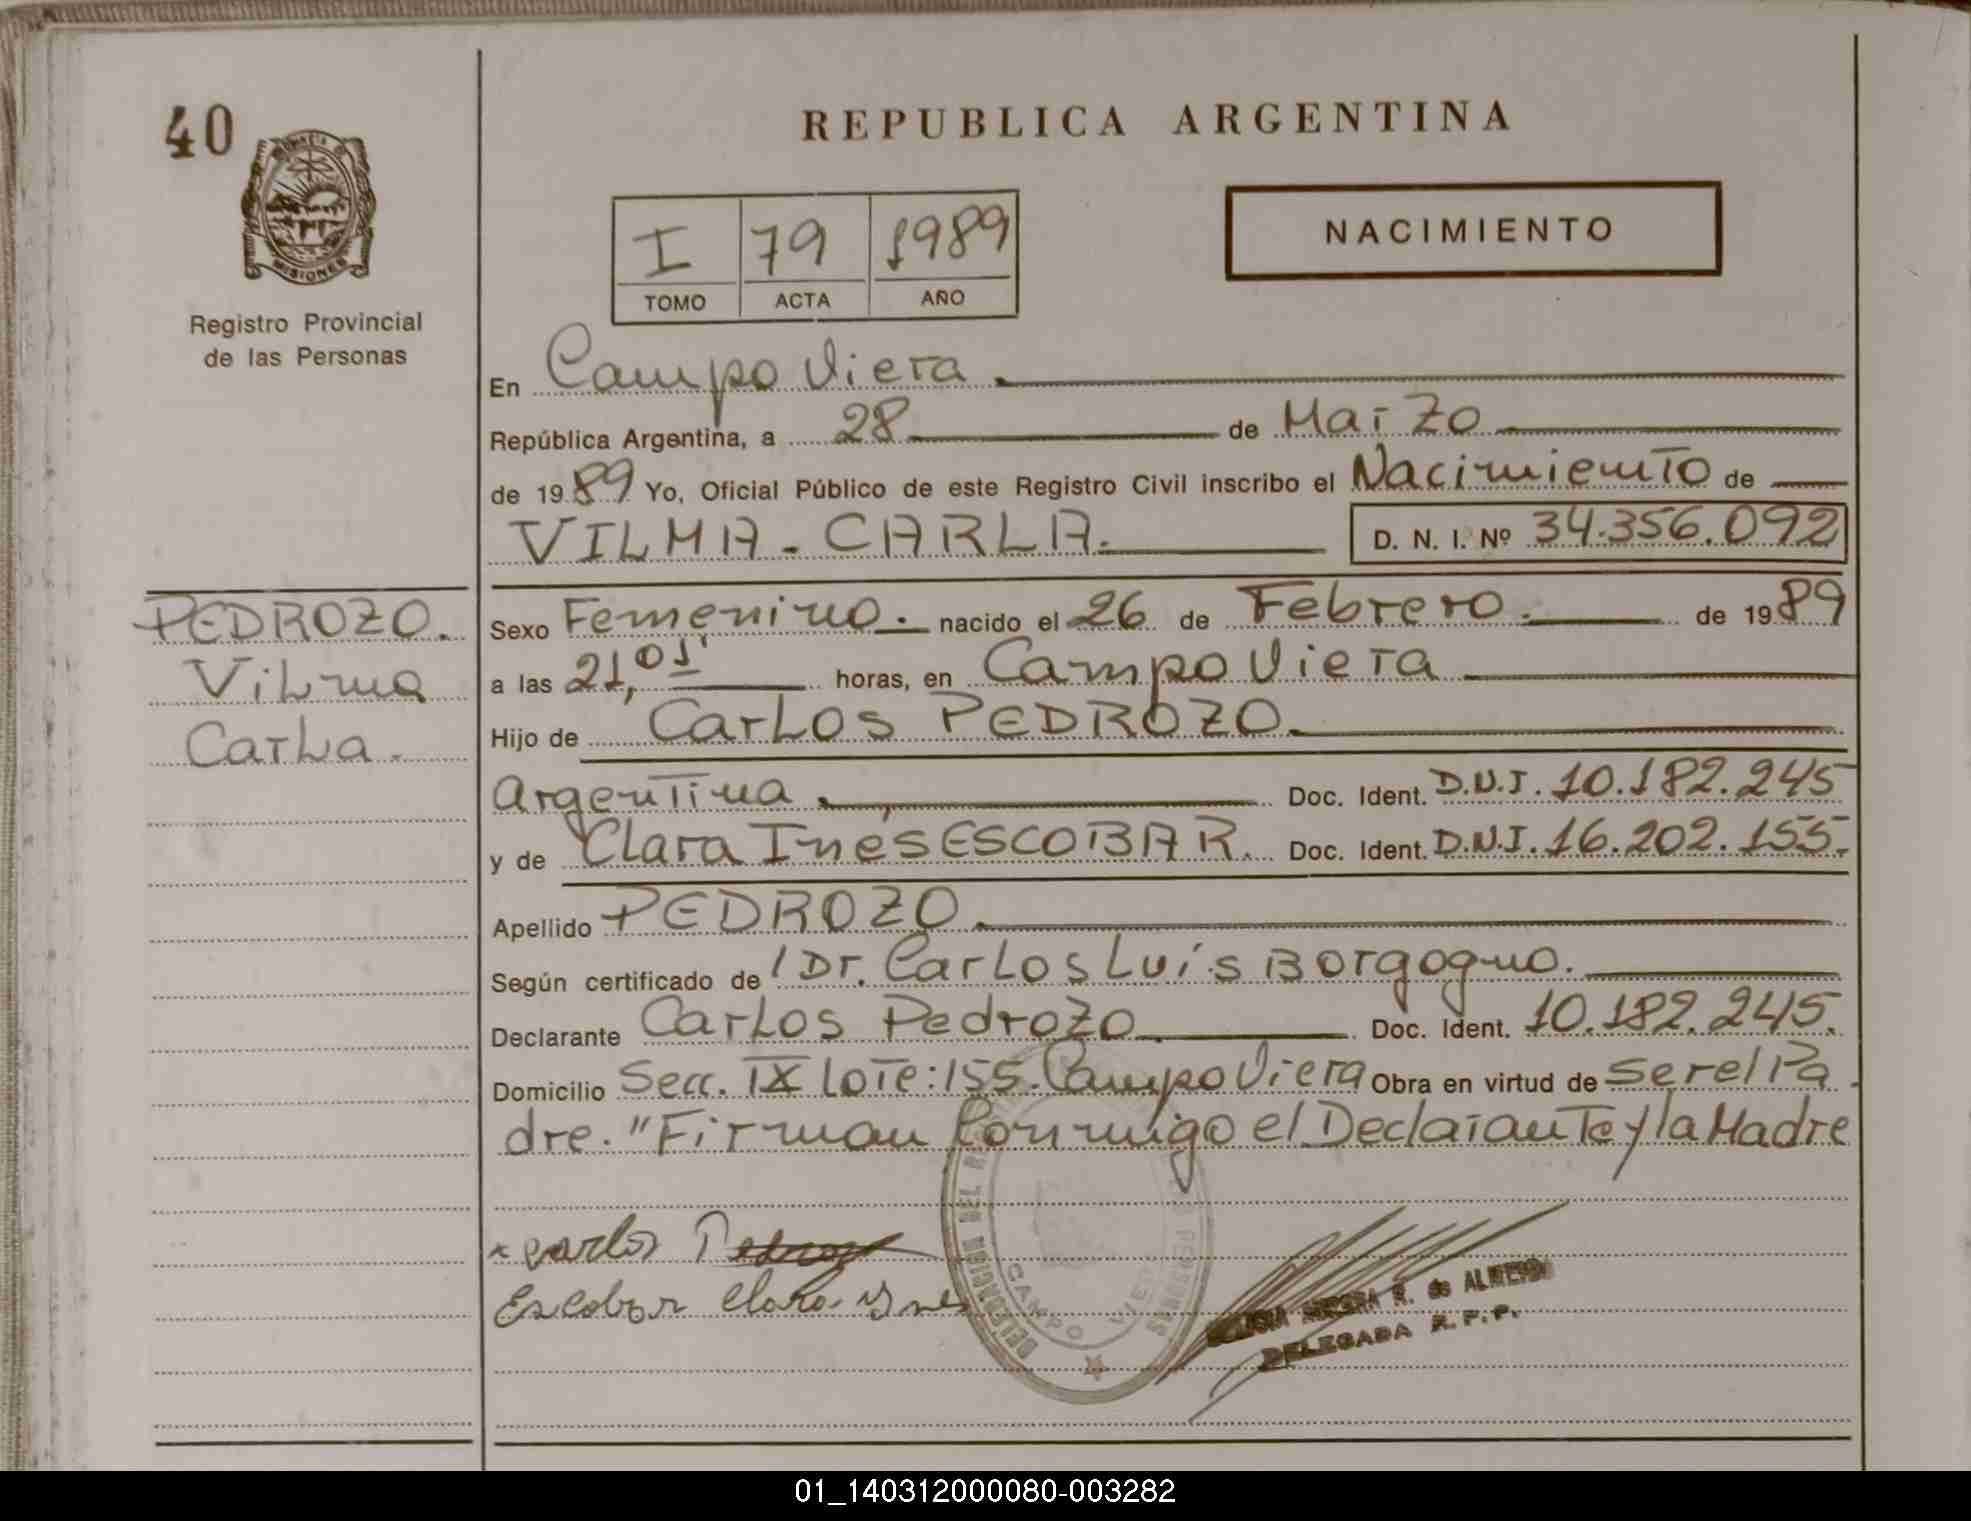 40
PROVINCIA DE
MISIONES
Registro Provincial
de las Personas
REPUBLICA ARGENTINA
I 79 1989
TOMO ACTA AÑO
NACIMIENTO
En Campo Viera
República Argentina, a 28 de Marzo
de 1989 Yo, Oficial Público de este Registro Civil inscribo el Nacimiento de
VILMA - CARLA. D. N. I. Nº 34.356.092
PEDROZO.
Vilma
Carla.
Sexo Femenino. nacido el 26 de Febrero. de 1989
a las 21,01' horas, en Campo Viera
Hijo de Carlos PEDROZO.
Argentina. Doc. Ident. D.N.I. 10.182.245
y de Clara Inés ESCOBAR. Doc. Ident. D.N.I. 16.202.155.
Apellido PEDROZO.
Según certificado de / Dr. Carlos Luís Borgogno.
Declarante Carlos Pedrozo Doc. Ident. 10.182.245.
Domicilio Secc. IX Lote: 155. Campo Viera Obra en virtud de Ser el Pa
dre. "Firman Conmigo el Declarante y la Madre
carlos Pedrozo
Escobar Clara Ynes
DELEGACION DEL REGISTRO
DE LAS PERSONAS
CAMPO VIERA
R. de ALMEIDA
DELEGADA R.P.P.
01_140312000080-003282